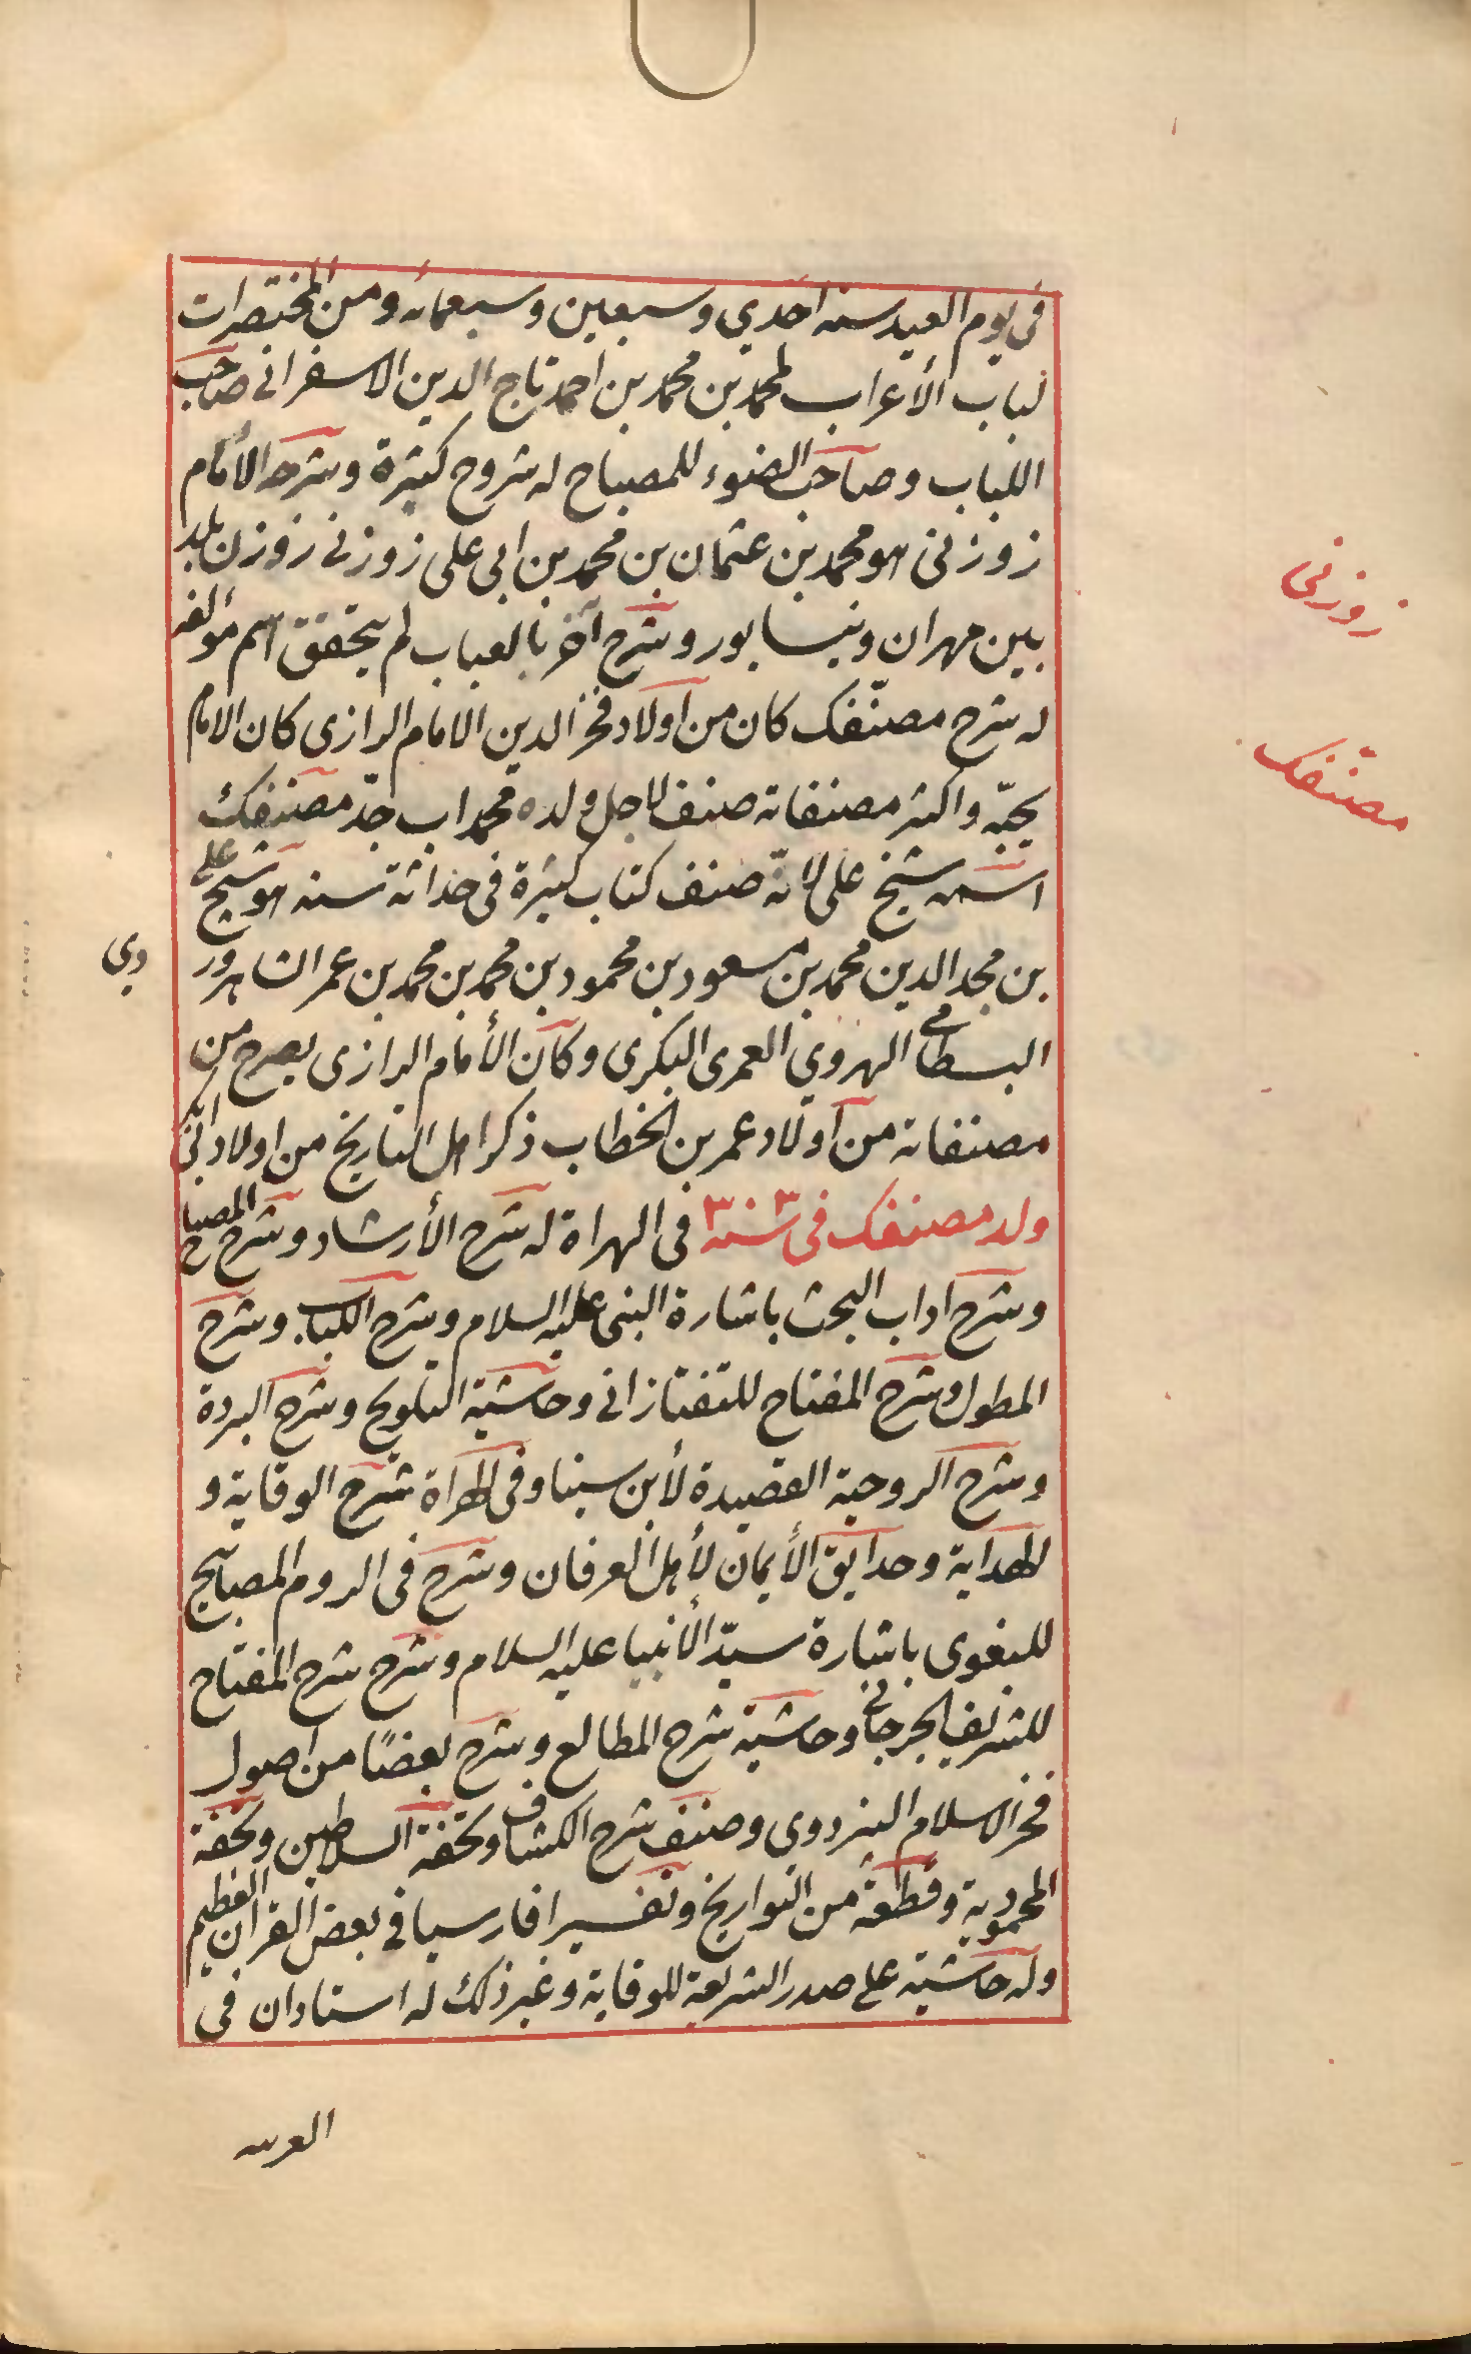 في يوم العيد سنه احدي وسبعين وسبعمائه ومن المختصرات
لباب الأعراب لمحمد بن محمد بن احمد تاج الدين الاسفرانی صاحب
اللباب وصاحب الضوء للمصباح له شروح كثيرة وشرحه الأمام
زوزنی هو محمد بن عثمان بن محمد بن ابی علی زوزنی زوزن بلد
بين مهران ونیسابور وشرح آخر بالعباب لم يتحقق اسم مؤلفه
له شرح مصنّفك كان من اولاد فخر الدين الامام الرازی كان الامام
يحبّه واكثر مصنفاته صنف لاجل ولده محمد اب جدّ مصنفك
اسمه شیخ علی لانّه صنف كتاب كثيرة فی حداثة سنه هو شیخ علی
بن مجد الدين محمد بن مسعود بن محمود بن محمد بن محمد بن عمر الشاهرور
دي
البسطامی الهروي العمری البكری وكان الأمام الرازی يصرح من
مصنفاته من اولاد عمر بن الخطاب ذكر اهل التاريخ من اولاد ابی بكر
ولد مصنفك فی سنه ٣٠٣ فی الهراة له شرح الأرشاد وشرح المصباح
وشرح اداب البحث باشارة النبی عليه السلام وشرح اللباب وشرح
المطول وشرح المفتاح للتفتازانی وحاشية التلويح وشرح البردة
وشرح الروحية القصيدة لأبن سينا وفی الهراة شرح الوقاية و
الهداية وحدايق الأيمان لأهل العرفان وشرح فی الروم المصابيح
للبغوی باشارة سيدّ الأنبيا عليه السلام وشرح شرح المفتاح
للشريف الجرجانی وحاشية شرح المطالع وشرح بعضًا من اصول
فخر الاسلام البزدوی وصنف شرح الكشاف وتحفة السلاطين وتحفة
المحمودية وقطعة من التواريخ وتفسيرا فارسيا فی بعض القران العظيم
وله حاشية علی صدر الشريعة للوقاية وغير ذلك له استادان فی
العربيه
زوزنی
مصنّفك